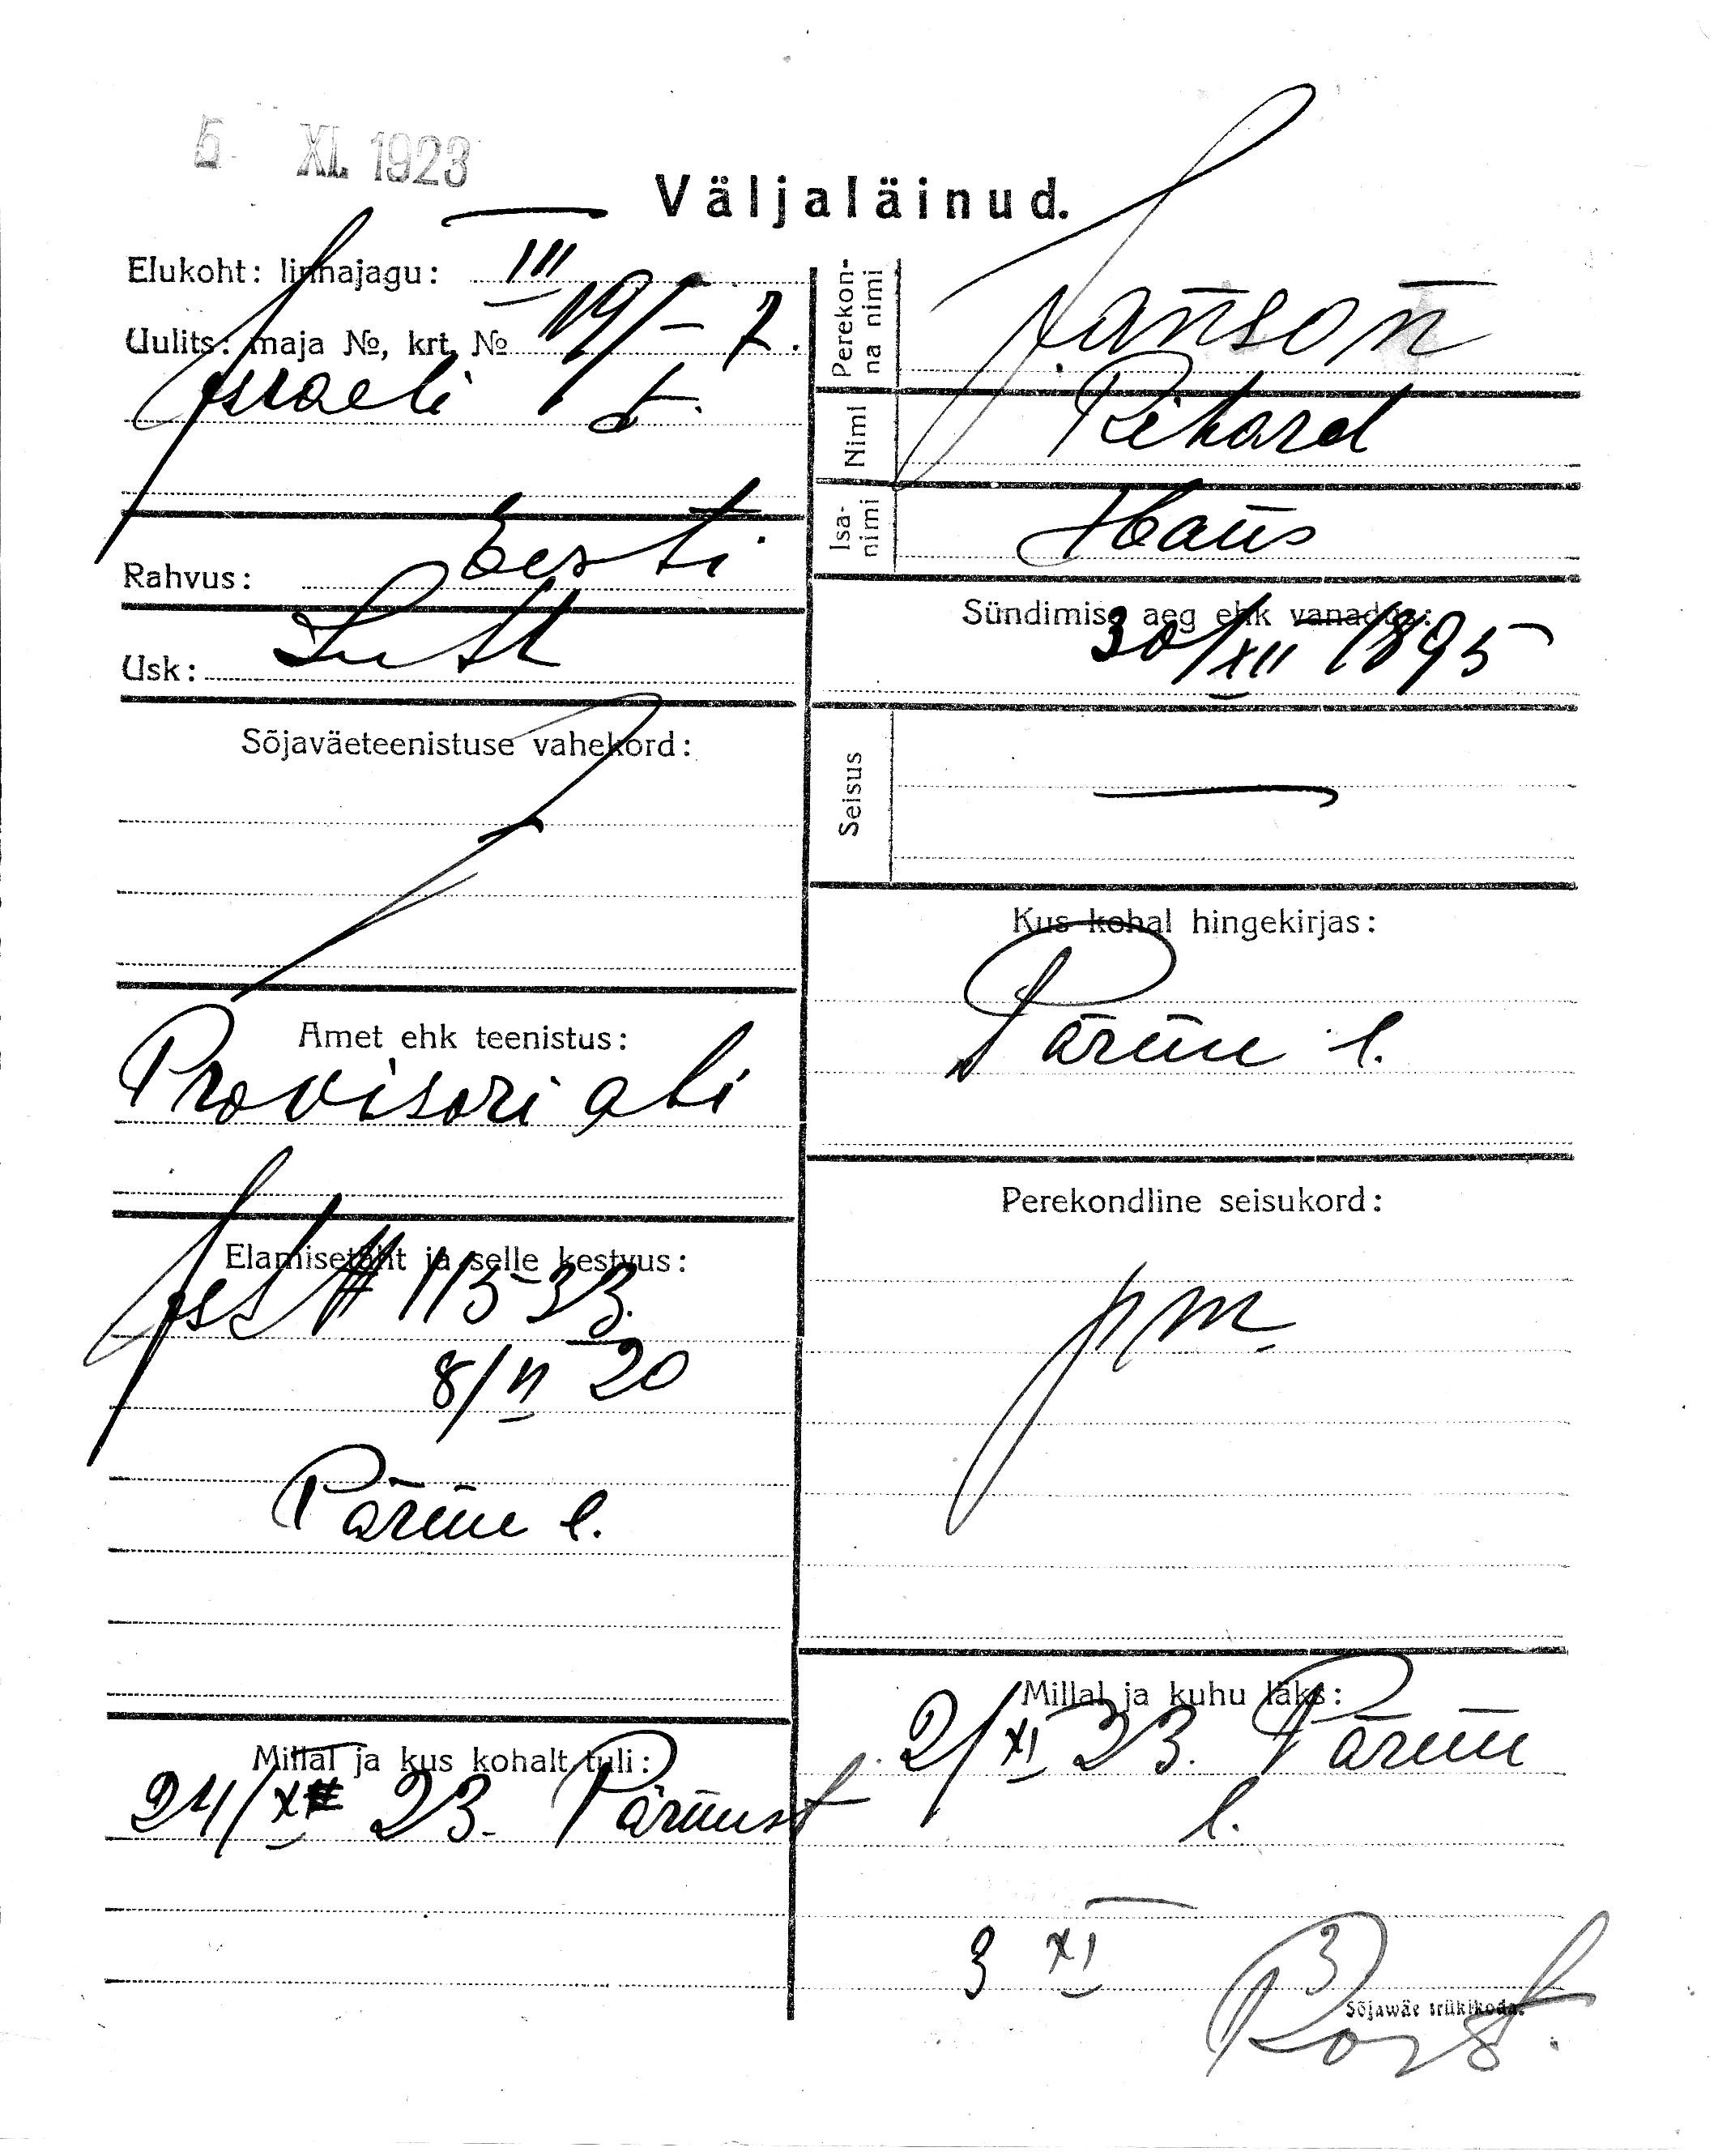 5 XI. 1923
Väljaläinud.
Elukoht: linnajagu: III
Uulits: maja №, krt. № 19/I - 7.
Israeli t.
Rahvus: Eesti
Usk: Luth
Sõjaväeteenistuse vahekord:
Amet ehk teenistus:
Provisori abi
Elamisetäht ja selle kestvus:
11533
8/VI 20
Pärnu l.
Millal ja kus kohalt tuli:
24/X 23. Pärnust
Perekonna nimi
Janson
Nimi
Rihard
Isanimi
Hans
Sündimise aeg ehk vanadus:
30/XII 1895
Seisus
Kus kohal hingekirjas:
Pärnu l.
Perekondline seisukord:
pm
Millal ja kuhu läks:
2/XI 23. Pärnu
l.
3 XI
Sõjawäe trükikoda.